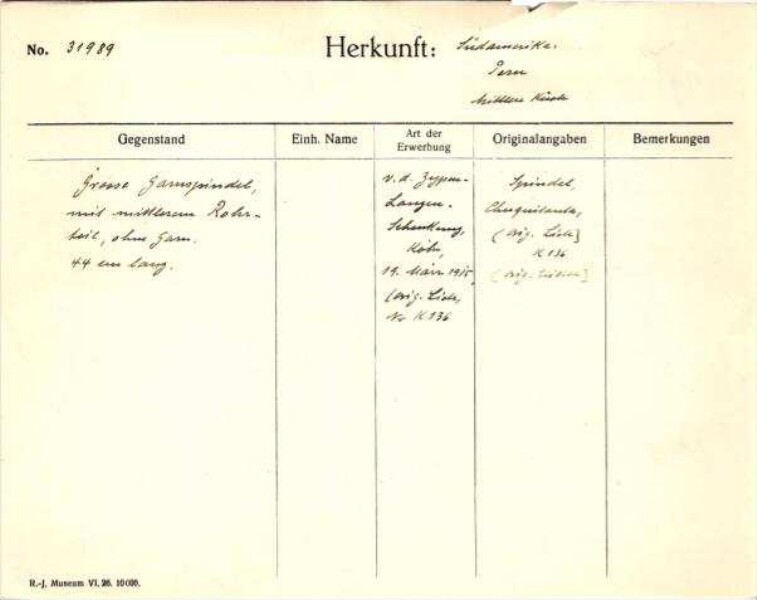 No. 31989
Herkunft: Südamerika.
Peru
Mittlere Küste
Gegenstand
Einh. Name
Art der
Erwerbung
Originalangaben
Bemerkungen
Grosse Garnspindel,
mit mittlerem Rohr-
teil, ohne Garn.
44 cm lang.
v. d. Zypen-
Langen-
Schenkung,
Köln,
19. März 19
(orig. Liste,
No K 136
Spindel,
Chuquitanta,
(orig. Liste)
K 136
(orig.
R.-J. Museum VI. 26. 10000.